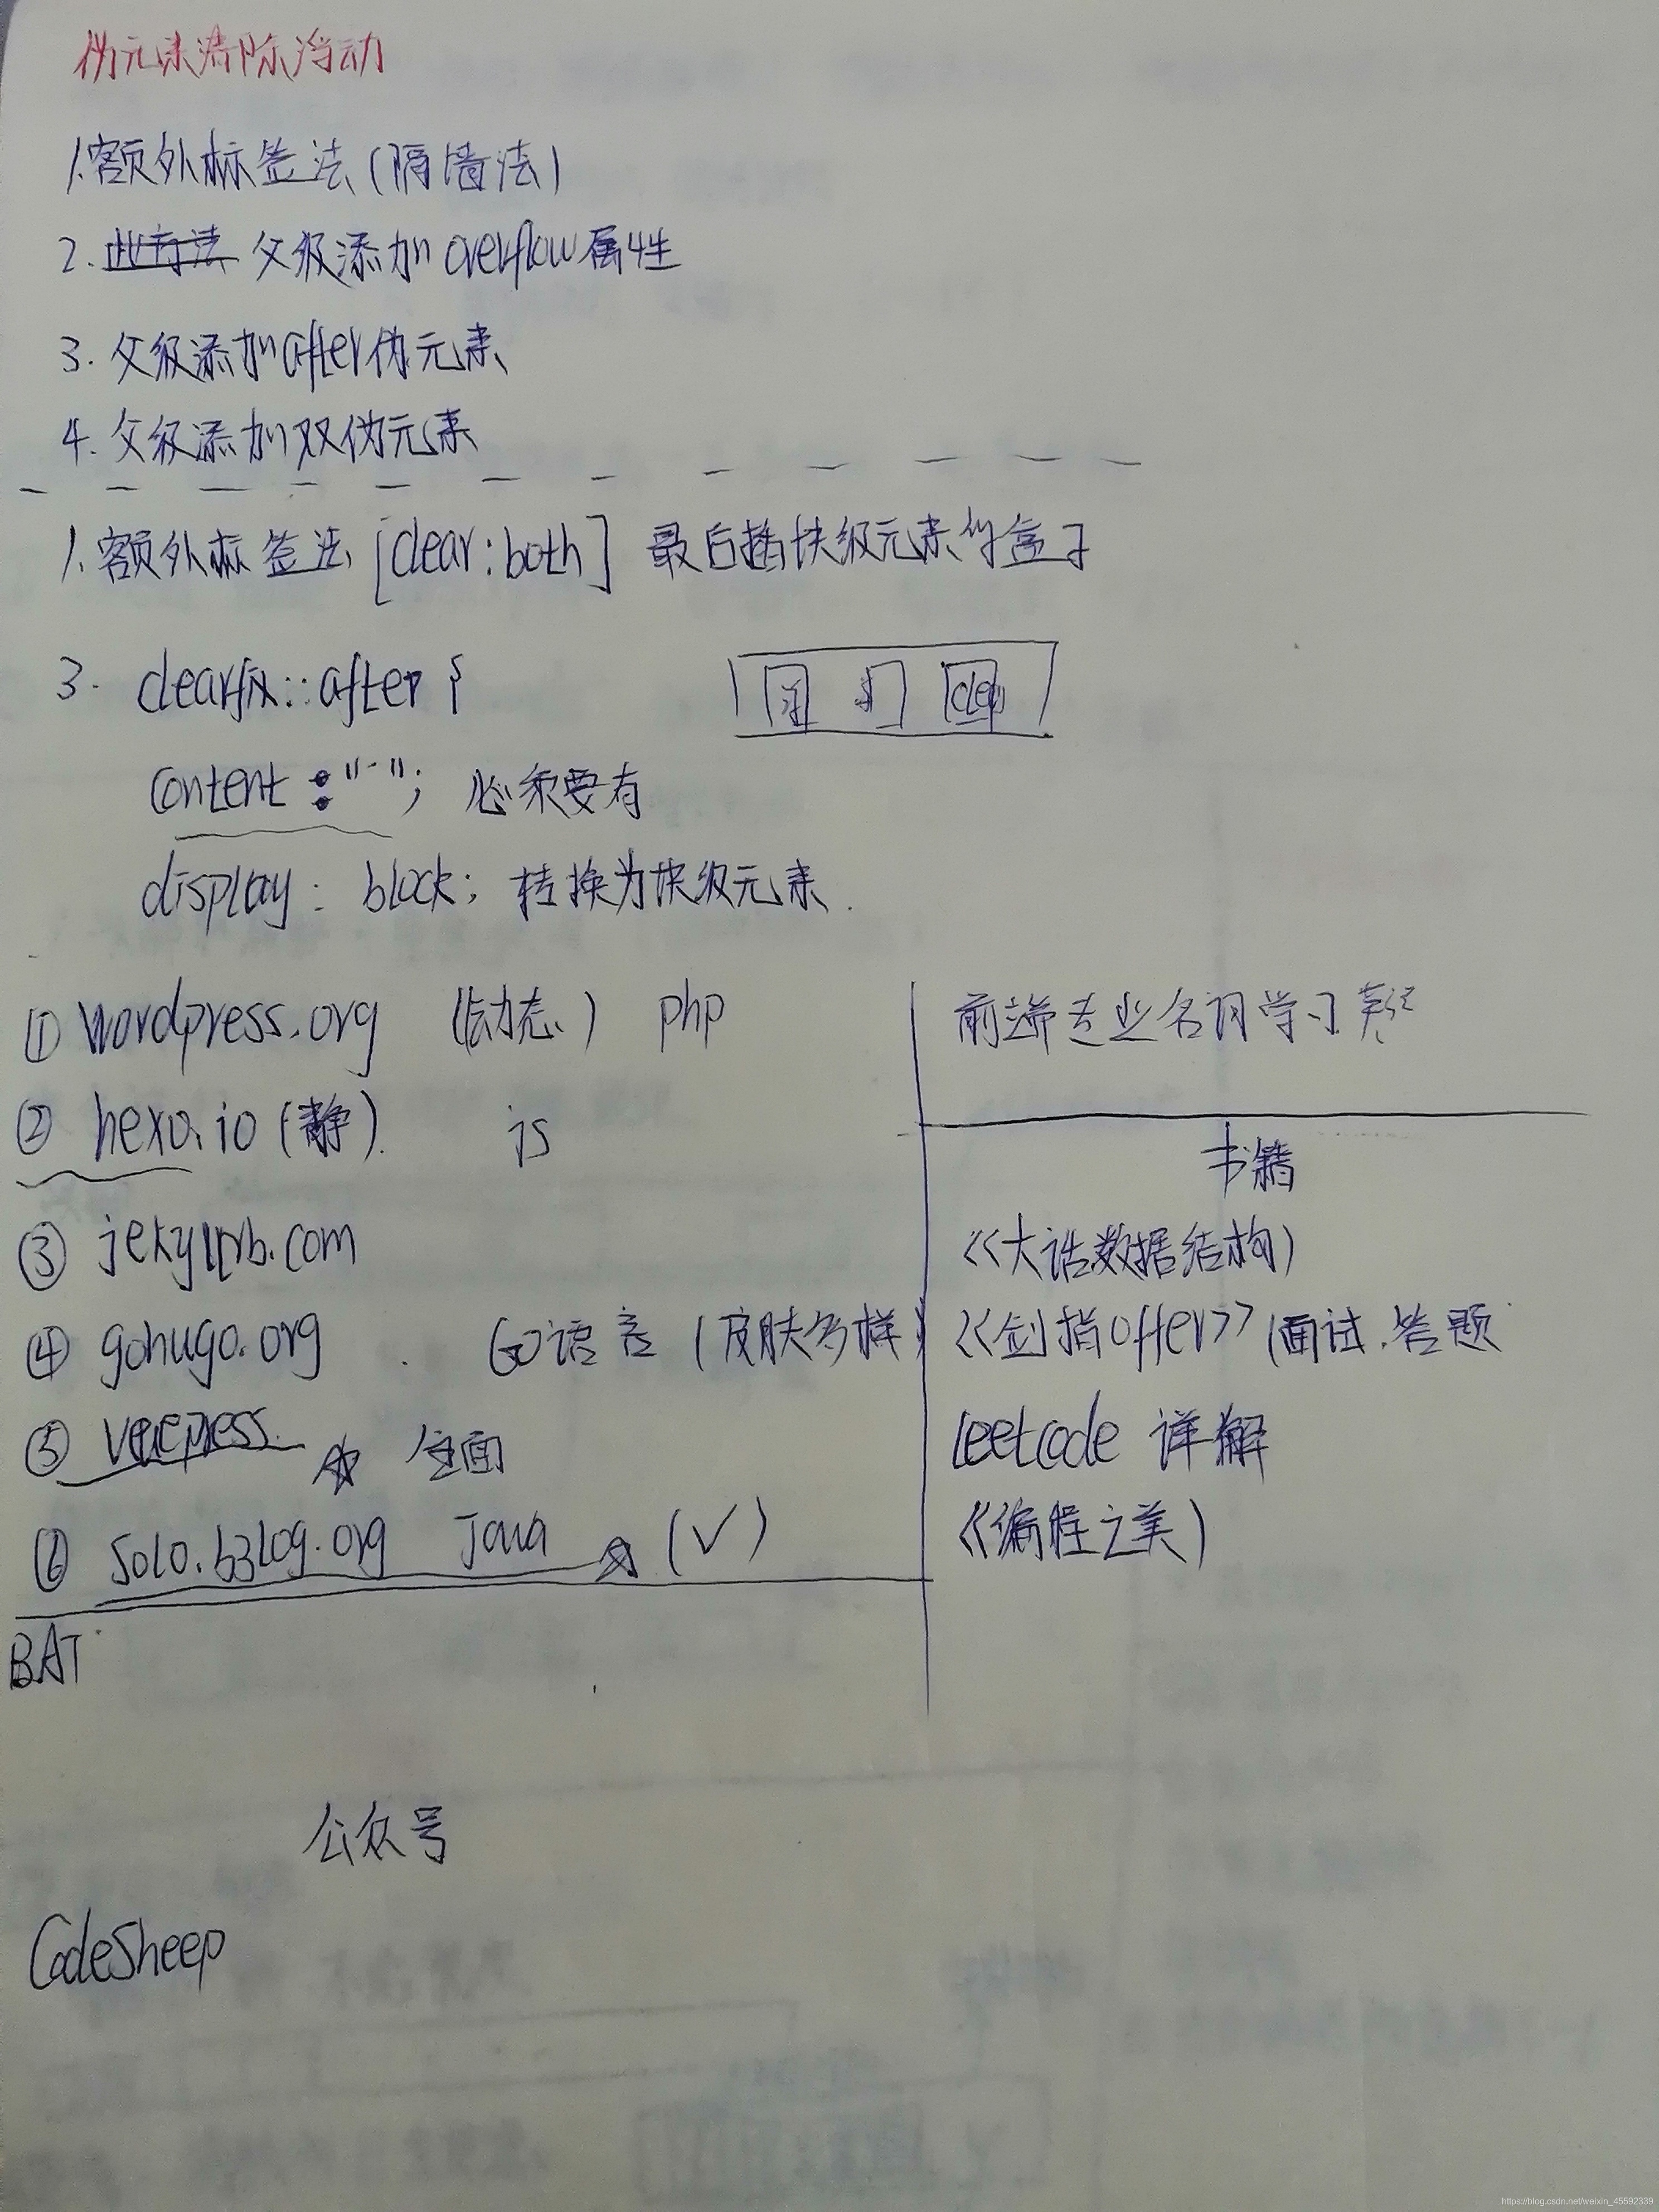 伪元素清除浮动
1.额外标签法(隔墙法)
2. 此方法 父级添加overflow属性
3. 父级添加after伪元素
4. 父级添加双伪元素
1. 额外标签法 [clear:both] 最后插块级元素的盒子
3. clearfix::after {
content : "."; 必须要有
display: block; 转换为块级元素.
① wordpress.org (动态) php
② hexo.io (静). js
③ jekyllrb.com
④ gohugo.org Go语言 (皮肤多样)
⑤ vuepress 全面
⑥ solo.b3log.org Java (✓)
BAT
前端专业名词学习
书籍
<<大话数据结构)
<<剑指offer>> (面试.答题
leetcode 详解
<<编程之美)
公众号
CodeSheep
https://blog.csdn.net/weixin_45592339